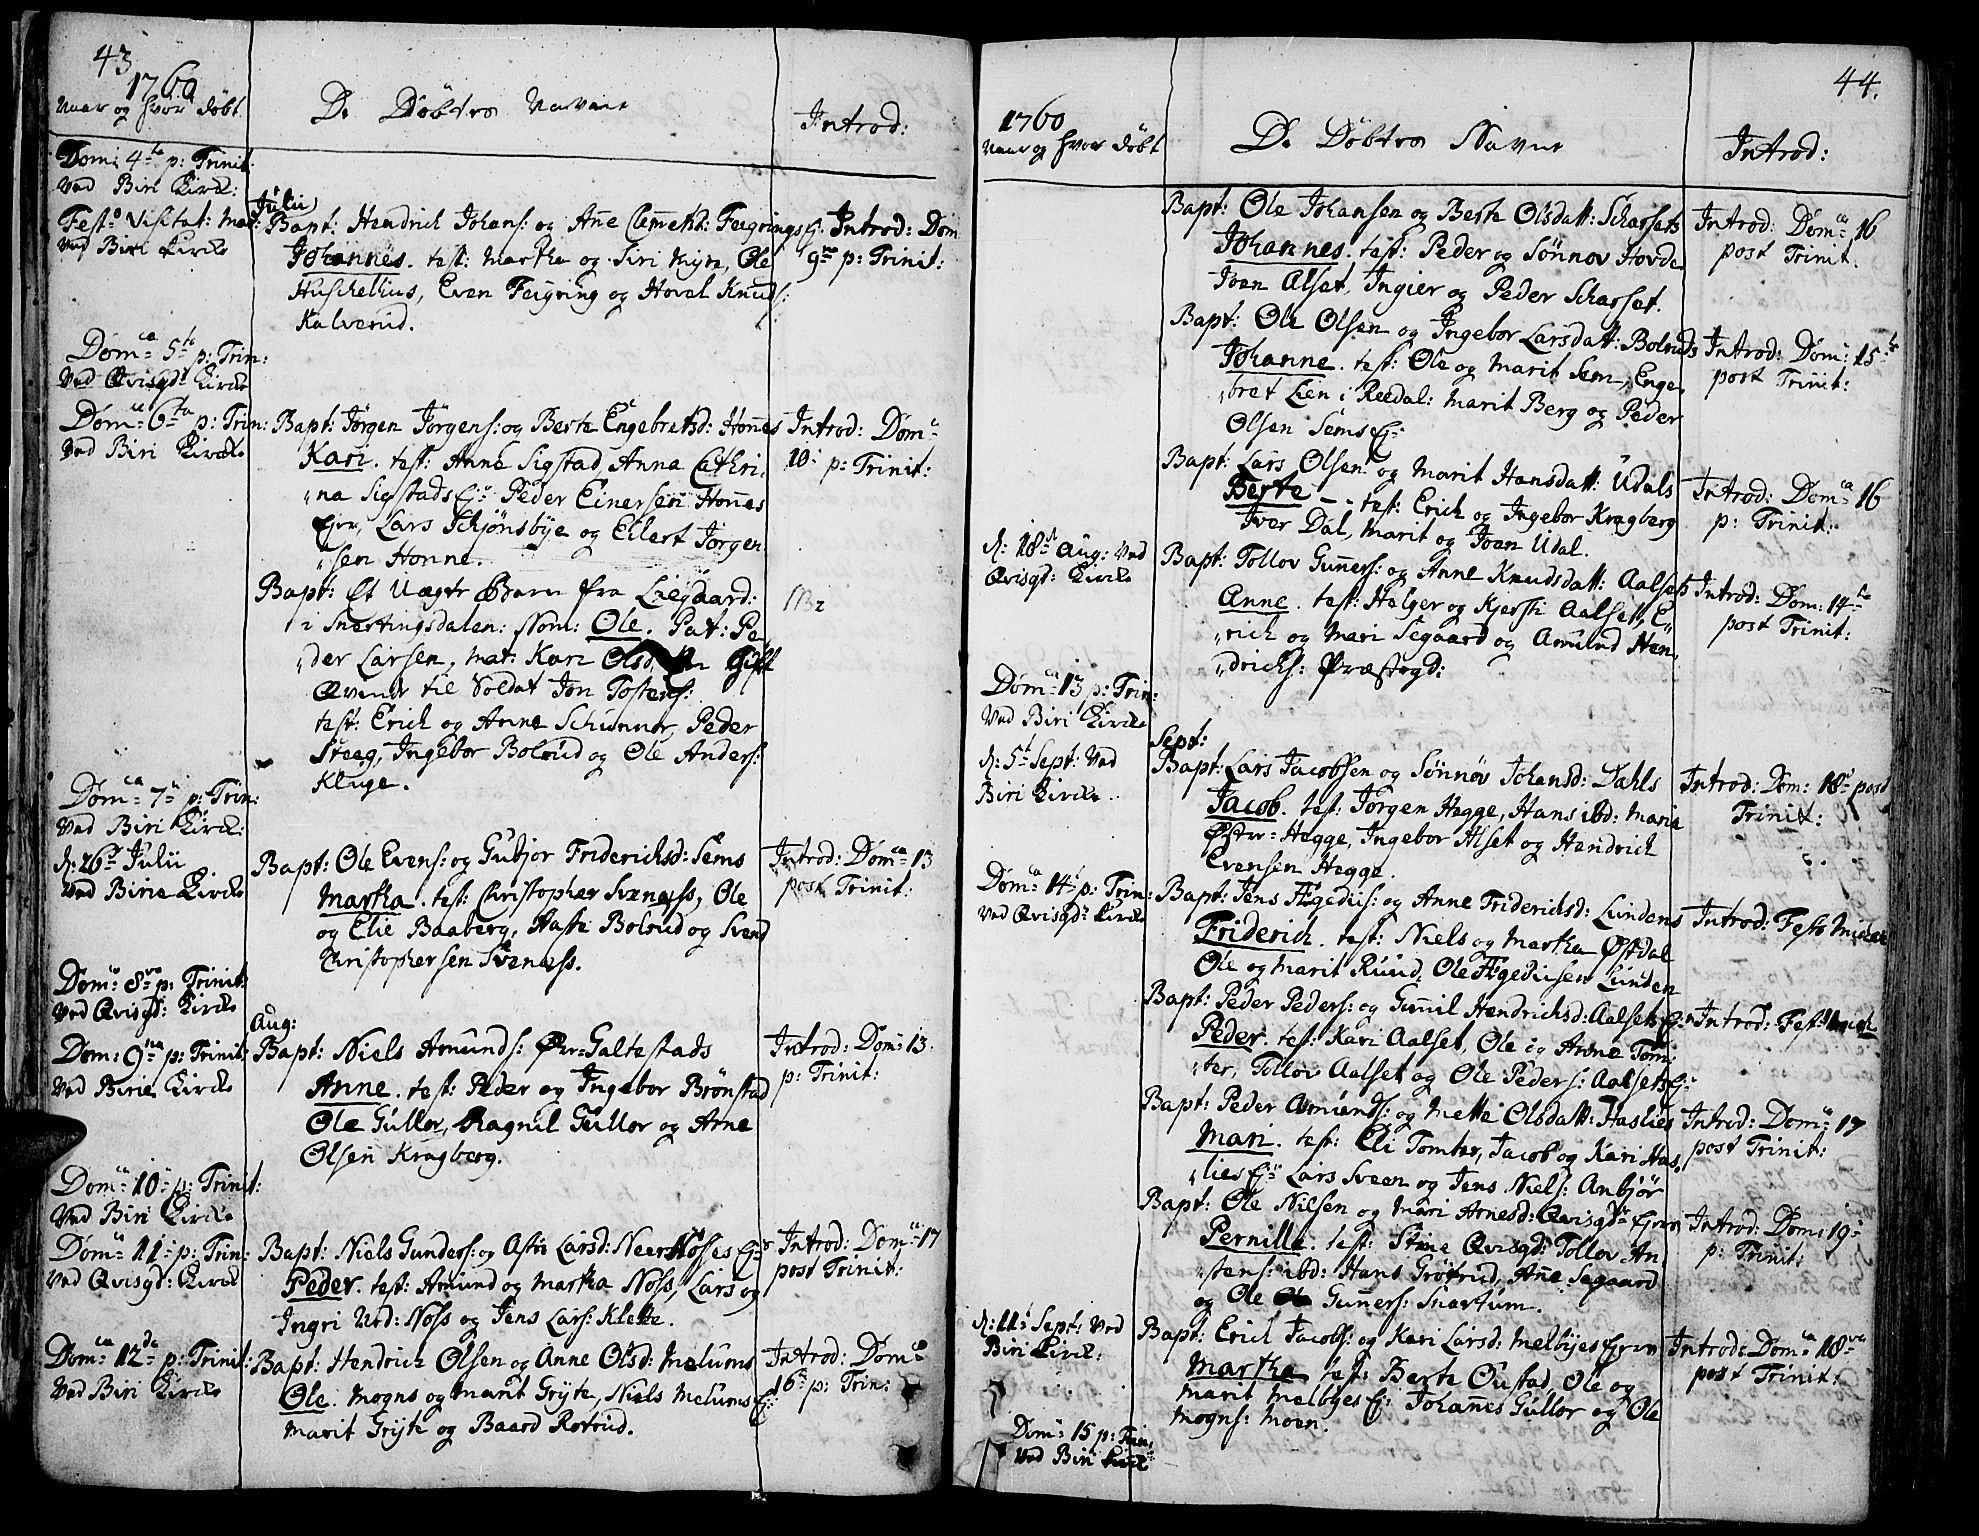 43
1760
Naar og hvor døbt.
De Døbtes Navne
Introd:
Domi 4ta p: Trinit.
Ved Biri Kirck:
Festo Visitat: Mar:
Ved Biri Kircke
Julii
Bapt: Hendrich Johans: og Anne Clemetsd: Feigrings Ej:
Johannes. test: Martha og Siri Myre, Ole
Huschelhus, Even Feigring og Hovel Knuds:
Kalverud.
Introd: Dom
9na p: Trinit:
Domca 5ta p: Trin:
Ved Qvisgd: Kircke
Domca 6ta p: Trin:
Ved Biri Kircke
Bapt: Jørgen Jørgens: og Berte Engebretsd: Honnes
Kari. test: Anne Sigstad, Anna Cathri,
"na Sigstads Ej: Peder Einersen Honnes
Ejer, Lars Schjønsbye og Eilert Jørgen
"sen Honne.
Introd: Domca
10: p: Trinit:
Bapt: Et Uægte Barn fra Liegaard:
i Snertingsdalen: Nom: Ole. Pat: Pe
"der Larsen, mat: Kari Olsd, Gift
Qvinde til Soldat Jon Tostens:
test: Erich og Anne Schunner, Peder
Steeg, Ingebor Bolrud og Ole Anders:
Kluge.
NB
Domca 7a p: Trin:
Ved Biri Kirck:
d: 26 Julii
Ved Birie Kircke
Bapt: Ole Evens: og Gubjor Friderichsd: Sems
Martha. test: Christopher Svenæss, Ole
og Elie Baaberg, Haste Bolrud og Svend
Christophersen Svenæss.
Introd: Domca 13
post Trinit:
Domca 8va p: Trinit:
Ved Qvisgd: Kircke
Aug:
Dom: 9na p: Trinit:
Ved Birie Kircke
Bapt: Niels Amunds: Øvr=Galtestads
Anne. test: Peder og Ingebor Brønstad
Ole Gullor, Ragnil Gullor og Arne
Olsen Kragberg.
Introd: Dom: 13.
p: Trinit:
Domca 10 p: Trinit:
Ved Biri Kircke
Domca 11 p: Trin:
Ved Qvisgd: Kirck
Bapt: Niels Gunders: og Astri Larsd: Neer Noses Ej:
Peder. test: Amund og Martha Noss, Lars og
Ingri Nrd: Noss og Jens Lars: Klette.
Introd: Domca 17
post Trinit:
Domca 12de p: Trinit:
Ved Biri Kircke
Bapt: Hendrich Olsen og Anne Olsd: Melums
Ole. Mogns og Marit Gryte, Niels Melums Ej:
Marit Gryte og Baard Rotrud.
Introd: Domca
16 p: Trin:
44.
1760
Naar og hvor døbt
De Døbtes Navne
Introd:
Bapt: Ole Johansen og Berte Olsdatt: Scharsets
Johannes. test: Peder og Sønnov Hovde
Joen Alset, Ingier og Peder Scharset.
Introd: Domca 16
post Trinit.
Bapt: Ole Olsen og Ingebor Larsdatt: Bolruds
Johanne. test: Ole og Marit Sem, Enge,
"bret Lien i Reedal: Marit Berg og Peder
Olsen Sems Ej:
Introd: Dom: 15
post Trinit:
Bapt: Lars Olsen og Marit Hansdatt: Udals
Berte - - test: Erich og Ingebor Kragberg
Iver Dal, Marit og Joen Udal.
Introd: Domca 16
p: Trinit:
d: 18de Aug: Ved
Qvisgd: Kircke
Bapt: Tollov Guners: og Anne Knudsdatt: Aalsets
Anne. test: Holger og Kjersti Aalset, E,
"rich og Mari Segaard og Amund Hen,
"drichs: Præstegd:
Introd: Dom: 14
post Trinit:
Domca 13 p: Trin:
Ved Biri Kircke
Sept:
d: 5t Sept: Ved
Biri Kircke.
Bapt: Lars Jacobsen og Sønnøv Johansd: Dæhls
Jacob. test: Jørgen Hegge, Hans ibd: Marie
Øster=Hegge, Ingebor Alset og Hendrich
Evensen Hegge.
Introd: Dom: 18 post
Trinit:
Domca 14 p: Trin:
Ved Qvisgd: Kircke
Bapt: Jens Ægedius: og Anne Friderichsd: Lundens
Friderich. test: Niels og Martha Østdal
Ole og Marit Ruud, Ole Ægediusen Lunden
Introd: Festo Micae
Bapt: Peder Peders: og Gunnil Hendrichsd: Aalsets Ej:
Peder. test: Kari Aalset, Ole og Anne Tom,
"ter, Tollov Aalset og Ole Peders: Aalsets Ej:
Introd: Fest:
Bapt: Peder Amunds: og Mette Olsdatt: Haslies
Mari. test: Eli Tomter, Jacob og Kari Has,
"lies Ej: Lars Sveen og Jens Niels: Anbjør
Introd: Domca 17
post Trinit:
Bapt: Ole Nilsen og Mari Arnesd: Qvisgds Ejern
Pernille. test: Stine Qvisgd: Tollov An
"stens: ibd: Hans Grøtrud, Anne Segaard
og Ole Guners: Snartum.
Introd: Dom: 19
p: Trinit:
d: 11 Sept: Ved
Biri Kirck:
Bapt: Erich Jacobs: og Kari Larsd: Melbyes Ejern
Martha test: Berte Oustad, Ole og
Marit Melbyes Ej: Johanes Gullor og Ole
Mogns: Moen.
Introd: Domca 18va
post Trinit:
Domca 15 p: Trin,
Ved Biri Kirck